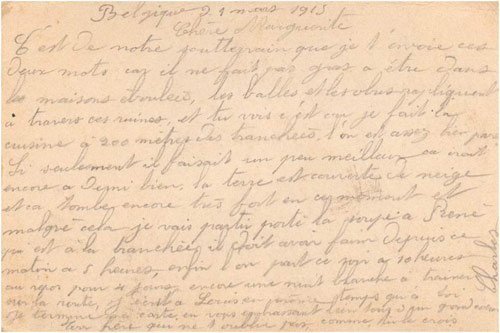 Belgique 21 mars 1915
Chère Marguerite
C'est de notre soutterain que je t'envoie ces
deux mots car il ne fait pas gras a être dans
les maisons éboulées, les balles et les obus rapliquent
a travers ces ruines, et tu vois c'est ou je fait la
cuisine à 200 mètres des tranchées l'on en assez bien par
Si seulement il faisait un peu meilleur ca irait
encore a demi bien, la terre est couverte de neige
et ca tombe encore très fort en ce moment et
malgré cela je vais partir porté la soupe a René
qui est à la tranchée, il doit avoir faim depuis ce
matin a 5 heures, enfin l'on part ce soir a 10 heures
au repos pour 4 jours encore une nuit blanche a trainer
sur la route, j'écrit a Louis en même temps qu'a toi
Je termine ma carte, en vous embrassant bien tous
ton frère qui ne t'oublie pas comme tu le crois